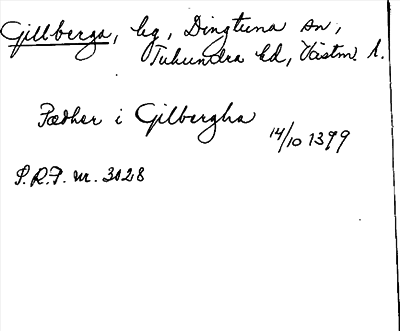 Gillberga, by, Dingtuna sn,
Tuhundra hd, Västm. l.
Pædher i Gilbergha
14/10 1399
S.R.P. nr. 3028